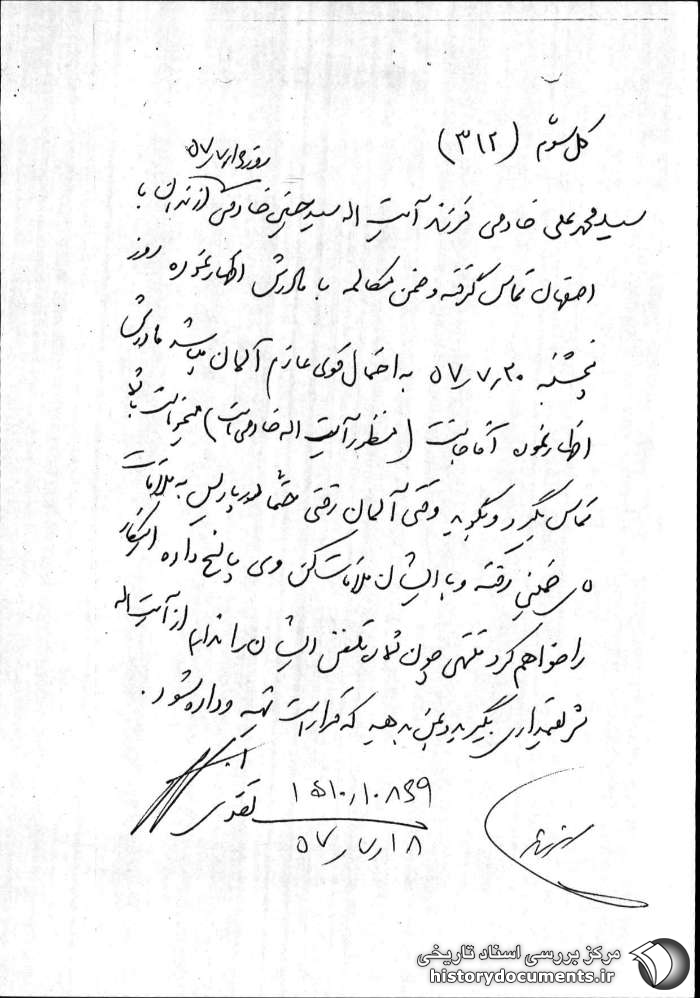 کل سوم (۳۱۲)
روز ۵۷/۷/
سید محمد علی خادمی فرزند آیت اله سید حسین خادمی از تهران با
اصفهان تماس گرفته و ضمن مکالمه با مادرش اظهار نموده روز
پنجشنبه ۵۷/۷/۲۰ به احتمال قوی عازم آلمان میباشد مادرش
اظهار نموده آقا جانت (منظور آیت اله خادمی است) میخواست با تو
تماس بگیرد و بگوید وقتی آلمان رفتی حتما برو پاریس به ملاقات
خمینی رفته و با ایشان ملاقات کن وی پاسخ داده اینکار
را خواهم کرد منتهی چون شماره تلفن ایشان را ندارم از آیت اله
شریعتمداری بگیرید و بمن بدهید که قرار است تهیه و داده شود.
تقوی
۵۷/۷/۱۸
مرکز بررسی اسناد تاریخی
historydocuments.ir